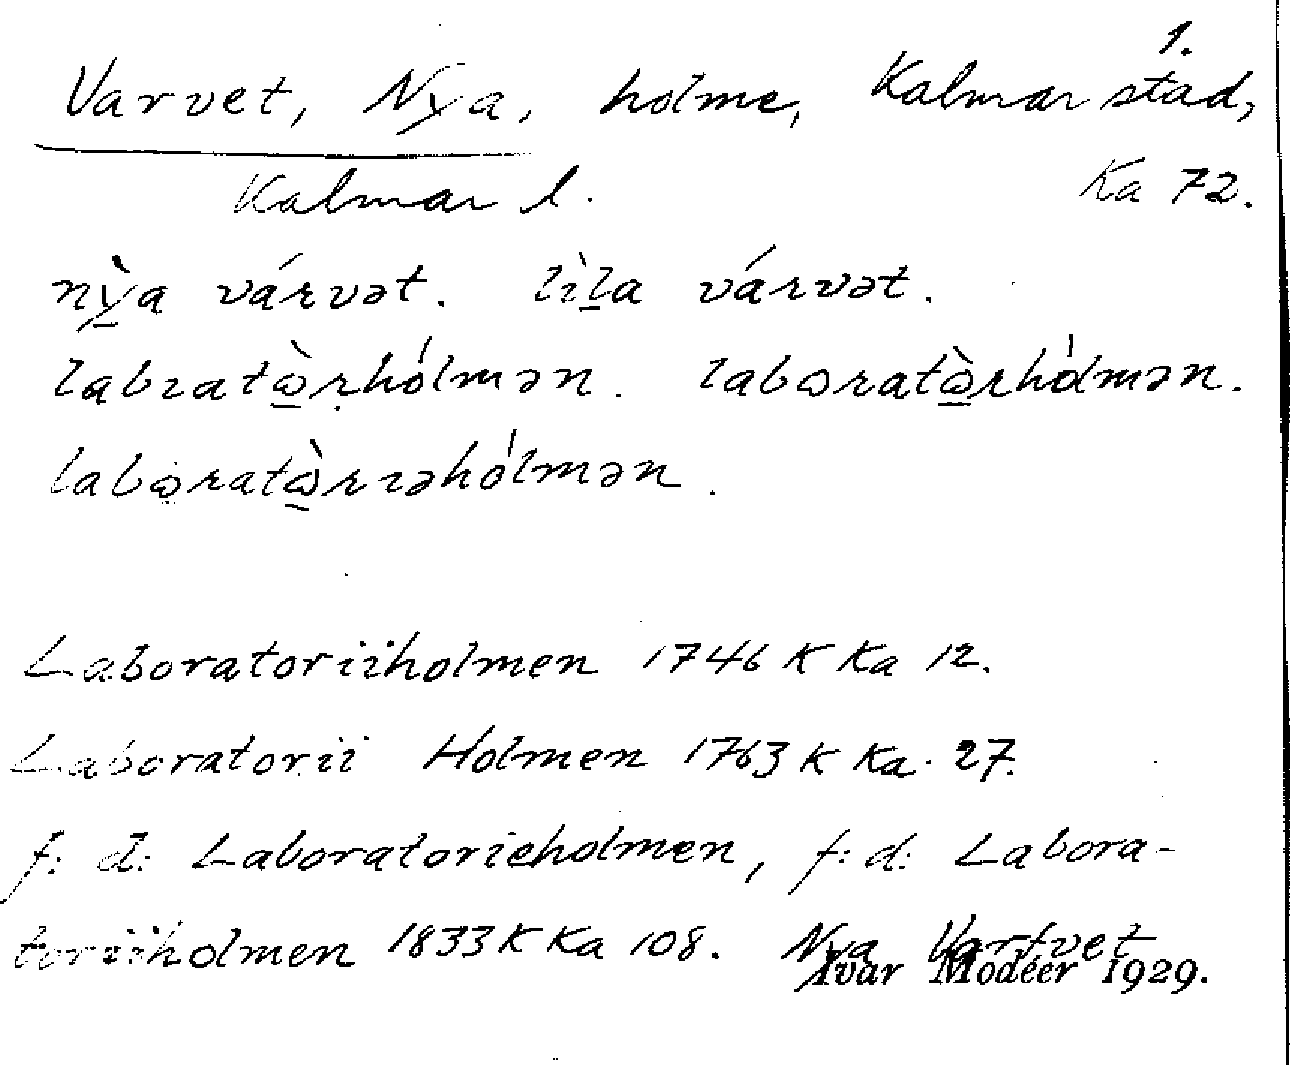 1.
Varvet, Nya, holme, Kalmar stad,
Kalmar l. Ka 72.
nỳ̲a várvət. lìl̲a várvət.
labıatὼ̲rhólmən. labωratὼ̲rhólmən.
labωratὼ̲rıəhólmən.
Laboratoriiholmen 1746 K Ka 12.
Laboratorii Holmen 1763 K Ka. 27.
f: d: Laboratorieholmen, f: d: Labora-
toriiholmen 1833 K Ka 108. Nya Varfvet
Ivar Modéer 1929.